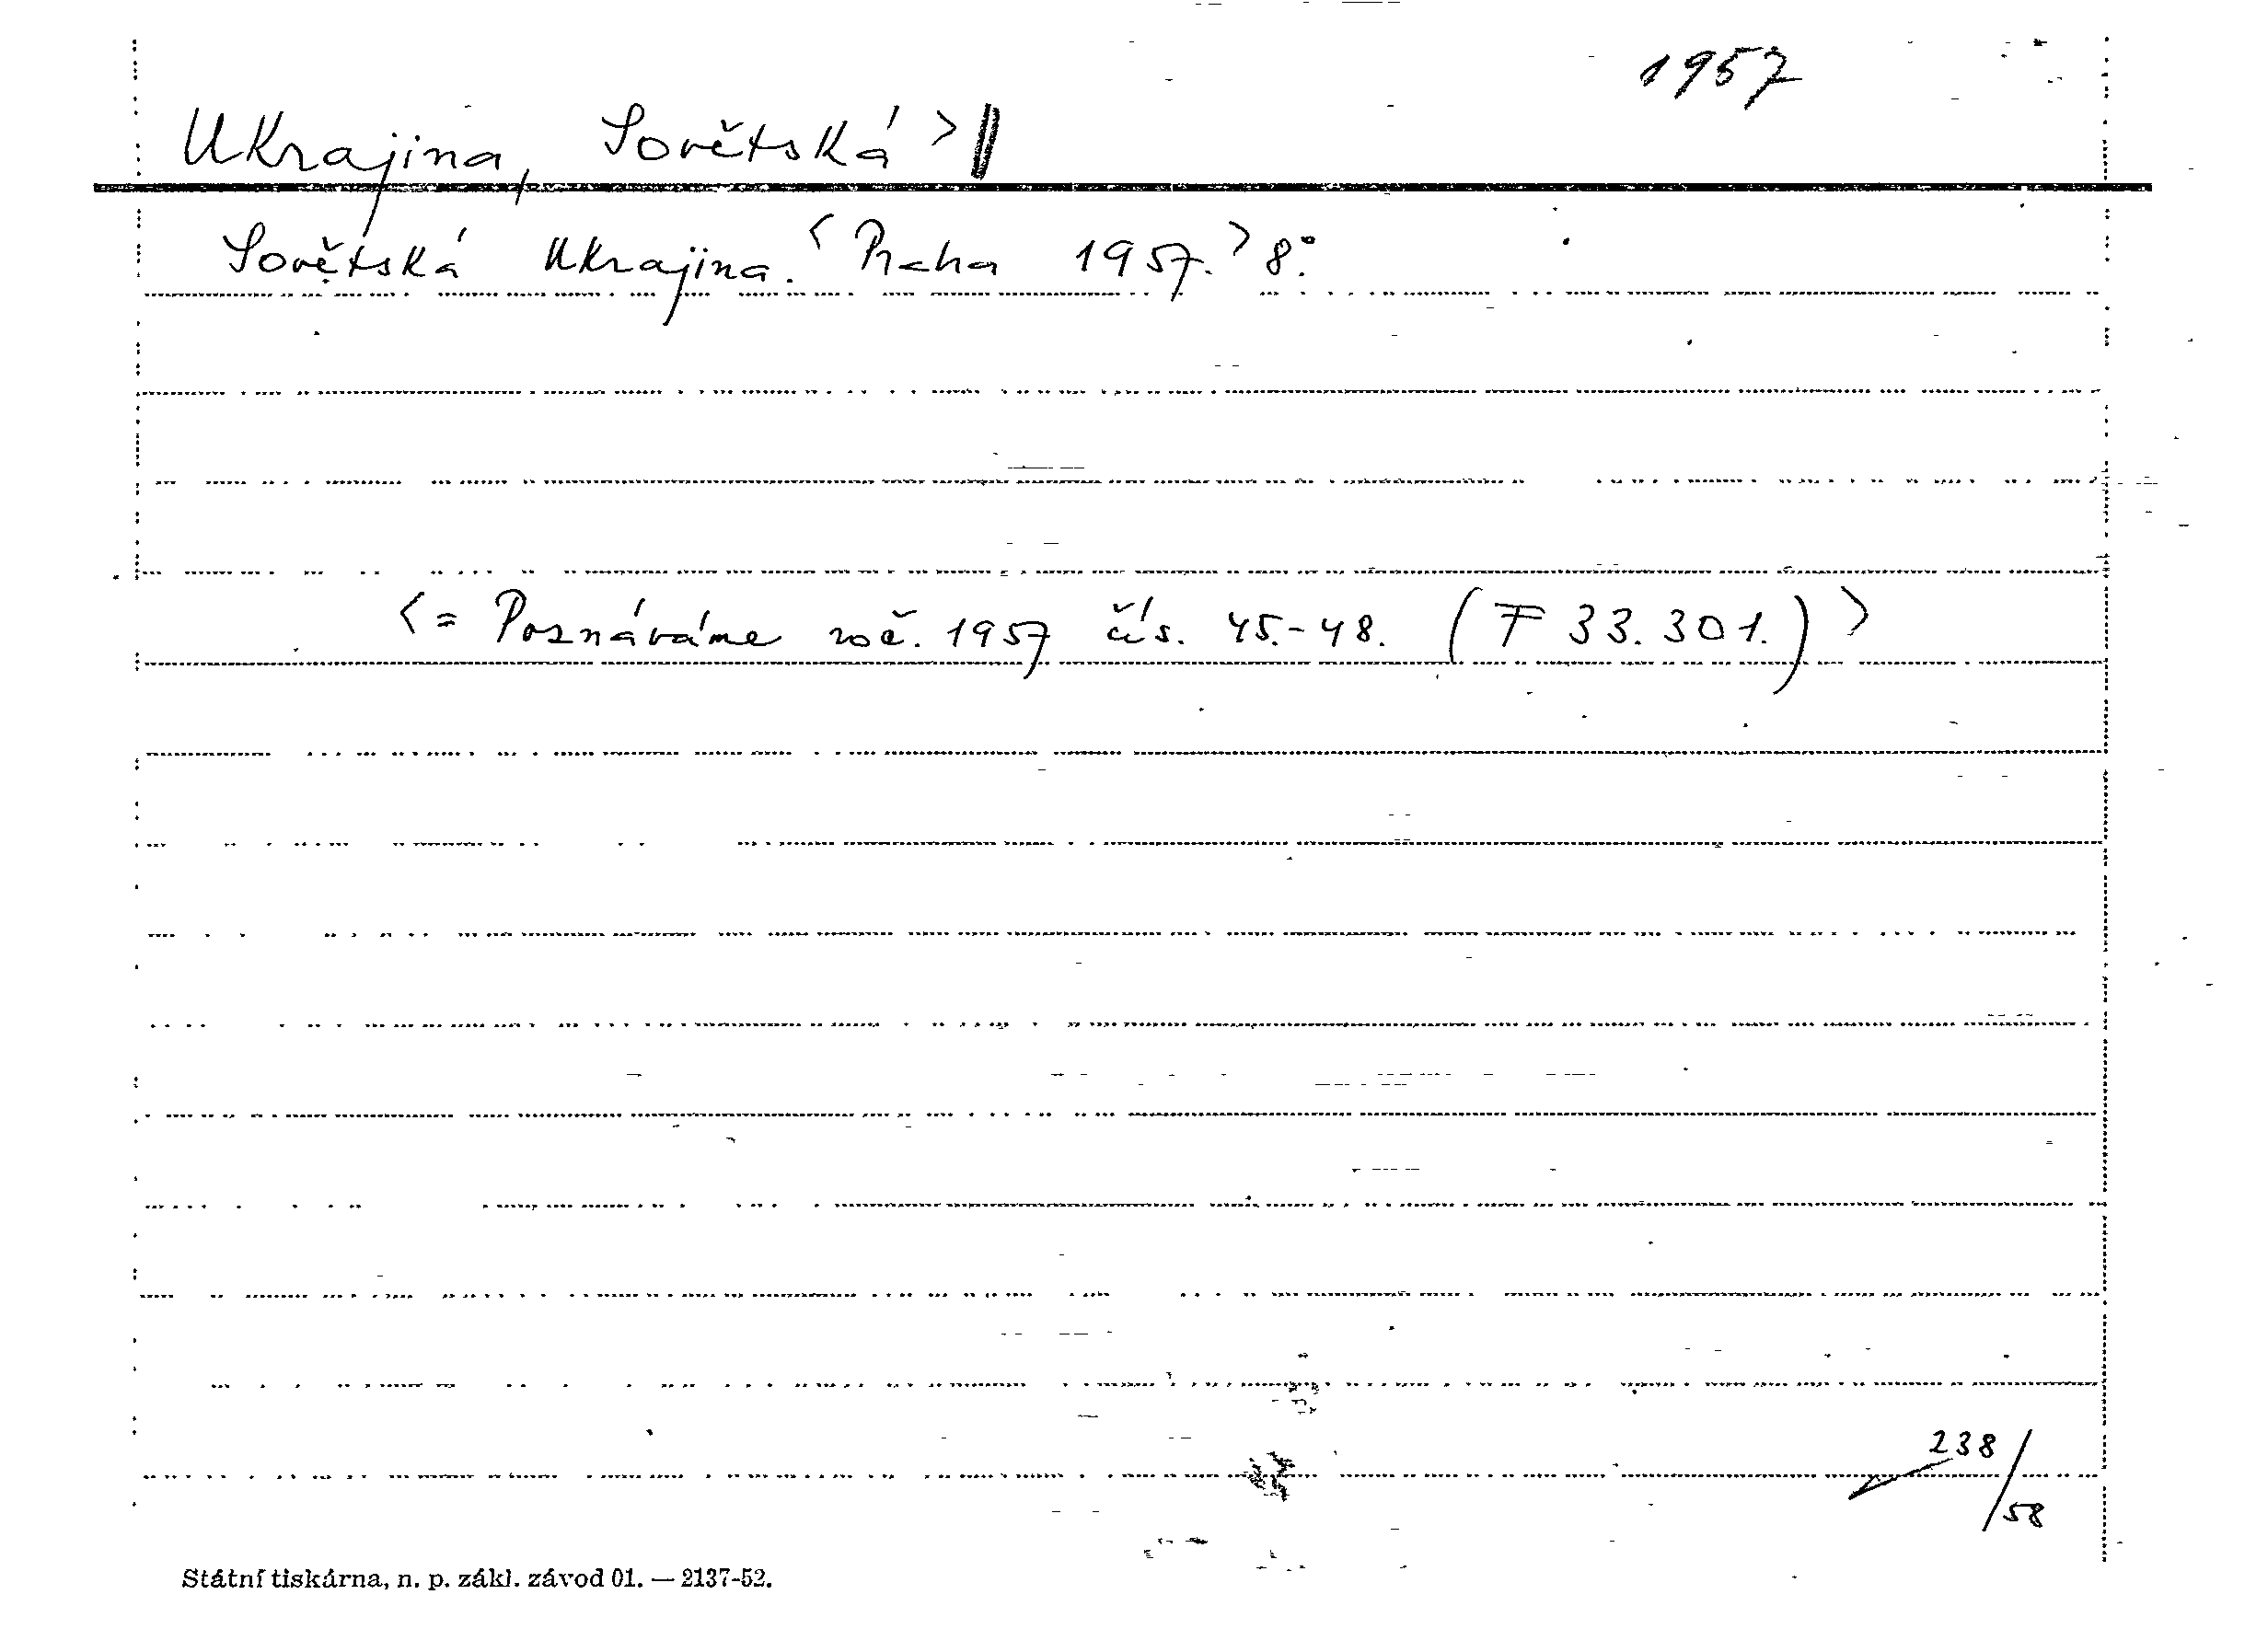 1957
Ukrajina, Sovětská >||
Sovětská Ukrajina. <Praha 1957.> 8°.
<= Poznáváme roč. 1957 čís. 45.-48. (F 33.301.)>
238/58
Státní tiskárna, n. p. zákl. závod 01. — 2137-52.